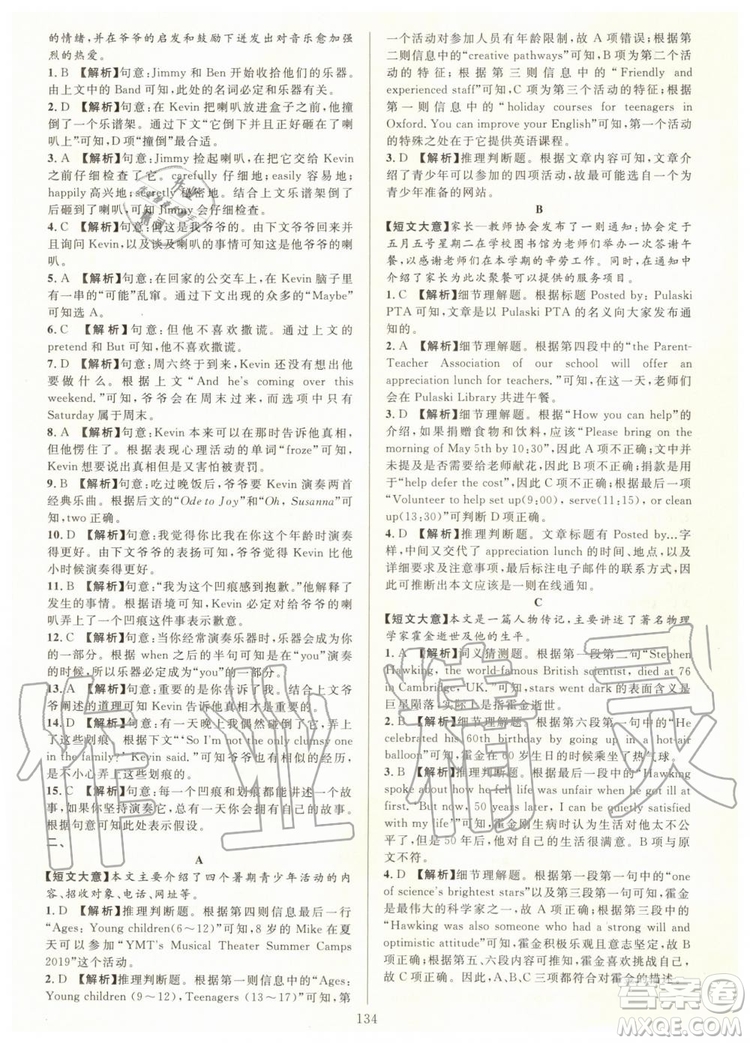 的情绪,并在爷爷的启发和鼓励下迸发出对音乐愈加强
烈的热爱。
1. B 【解析】句意:Jimmy 和 Ben 开始收拾他们的乐器。
由上文中的 Band 可知,此处的名词必定和乐器有关。
2. D 【解析】句意:在 Kevin 将喇叭放进盒子之前,他撞
倒了一个乐谱架。通过下文“它倒下并正好砸在他的喇
叭上”可知,D项“撞倒”正确。
3. A 【解析】句意:Jimmy 捡起喇叭,并在将它交给 Kevin
之前仔细检查了它。carefully 仔细地;easily 容易地;
happily 高兴地;secretly 秘密地。结合上文乐谱架倒了
后砸到了喇叭,可知 Jimmy 会仔细检查。
4. C 【解析】句意:
并且询问 Kevin,以及谈及喇叭的事情可知这是他的喇
叭。
5. A 【解析】句意:在回家的公交车上,在 Kevin 脑子里
有一串的“可能”乱窜。通过下文出现的众多的“Maybe”
可知选A。
6. C 【解析】句意:但他不喜欢撒谎。由上文的
pretend 和 But 可知,Kevin 不喜欢撒谎。
7. D 【解析】句意:周六终于到了,Kevin 仍旧不知道他
要做什么。根据上文“And he's coming over this
weekend.”可知,爷爷会在周末过来,而选项中只有
Saturday 属于周末。
8. A 【解析】句意:Kevin 本来可以在那时告诉他真相,
但他愣住了。根据表现心理活动的单词“froze”可知,
Kevin 因为害怕真相可能会被责罚。
9. B 【解析】句意:吃过晚饭后,爷爷要求 Kevin 演奏两
首经典乐曲。根据后文的“Ode to Joy”和“Oh, Susanna”可
知,two 正确。
10. D 【解析】句意:我觉得你比我在你这个年龄时演奏
得更好。由下文爷爷的演奏可知爷爷觉得 Kevin 比他
小时候演奏得更好。
11. B 【解析】句意:“我为这个凹痕感到抱歉。”他解释了
发生的事情。根据语境可知 Kevin 必定对给爷爷的喇
叭弄上了一个凹痕这件事表示歉意。
12. C 【解析】句意:当你经常演奏乐器时,乐器会成为你
的一部分。根据 when 这一时间的半句可知“you”演奏
得多了,乐器必定成为“you”的一部分。
13. C 【解析】句意:重要的是你告诉了我。结合上文爷
爷阐述的道理可知 Kevin 告诉爷爷真相是重要的。
14. D 【解析】句意:有一天晚上我偶然碰到了它,弄上
了这些划痕。根据下文“‘So I'm not the only clumsy one
in the family?’ Kevin said.”可知爷爷也有相似的经历,
D项更贴切。
15. C 【解析】句意:每一个凹痕和划痕都讲述着一个故
事。如果你坚持演奏它,你将会增加上你自己的故事。
根据句意可知此处表示假设。
二、
A
【短文大意】本文主要介绍了四个暑期青少年活动的内
容、招收对象、电话、网址等。
1. D 【解析】推理判断题。根据第四则信息最后一行
“Ages: Young children(6~12)”可知,8 岁的 Mike 在夏
天可以参加“YMT's Musical Theater Summer Camps
2019”这个活动。
2. D 【解析】推理判断题。根据第一则信息中的“Ages:
Young children (9~12), Teenagers (13~17)”可知,第
一个活动对参加人员有年龄限制,故 A 项错误;根据第
二则信息中的“creative pathways”可知,B 项为第二个活
动的特征;根据第三则信息中的“Friendly and
experienced staff”可知,C 项为第三个活动的特征;根据
第一则信息中的“holiday courses for teenagers in
Oxford. You can improve your English”可知,第一个活动
的特殊之处在于它提供英语课程。
3. D 【解析】推理判断题。根据文章内容可知,文章介
绍了青少年可以参加的四项活动,故文章可能选自一个
为青少年准备的网站。
B
【短文大意】家长—教师协会发布了一则通知:协会定于
五月五号星期二在学校图书馆为老师们举办一次答谢午
餐,以感谢老师们在本学期的辛劳工作。同时,在通知中
介绍了家长为此次聚餐可以提供的服务项目。
1. C 【解析】细节理解题。根据标题 Posted by: Pulaski
PTA 可知,文章是以 Pulaski PTA 的名义向大家发布通
知的。
2. A 【解析】细节理解题。根据第四段中的“the Parent-
Teacher Association of our school will offer an
appreciation lunch for teachers.”可知,活动当天,老师们
会在 Pulaski Library 共进午餐。
3. D 【解析】细节理解题。根据“How you can help”的
介绍,如果捐赠食物和饮料,应该“Please bring on the
morning of May 5th by 10:30”,故 A 项不正确;文中并
未提及是否需要给老师献花,故 B 项不正确;捐款是用
于“help defer the cost”,因此 C 项不正确;根据
“Volunteer to help set up(9:00), serve(11:15), or clean
up(13:30)”可判断 D 项正确。
4. D 【解析】推理判断题。文章标题有 Posted by…字
样,中间又交代了 appreciation lunch 的时间、地点,以及
详细要求及介绍,最后标注电子邮件的联系方式,因此
可推断出本文应该是一则在线通知。
C
【短文大意】本文是一篇人物传记,主要讲述了著名物理
学家霍金逝世及他的生平。
1. A 【解析】词义猜测题。根据第一段第一句“Stephen
Hawking, the world-famous British scientist, died at 76
in Cambridge, UK.”可知,stars went dark 的表面含义是
巨星陨落,实际上是指霍金逝世。
2. B 【解析】细节理解题。根据第六段第一句中的“He
celebrated his 60th birthday by going up in a hot-air
balloon”可知,霍金在 60 岁生日的时候乘坐了热气球。
3. A 【解析】推理判断题。根据最后一段中的“Hawking
spoke about how he felt life was unfair when his illness
first appeared. Now, 50 years later, I can be quietly satisfied
with my life”可知,霍金刚生病时认为上天对他太不公
平了,但是 50 年后,他认为自己的人生很圆满,B 项与
原文不符。
4. B 【解析】细节理解题。根据第一段第一句中的“one
of science's brightest stars”和第三段第一句可知,霍金是
最伟大的科学家之一,故 A 项正确;根据第三段中的
“Hawking was always known for his humor and
optimistic attitude”可知,霍金积极乐观并且幽默,故 D
项正确。根据第五、六段内容可知,霍金喜欢挑战,故 C
项正确。因此,A、B、C三项都符合对霍金的描述。
134
作业精灵
答案卷